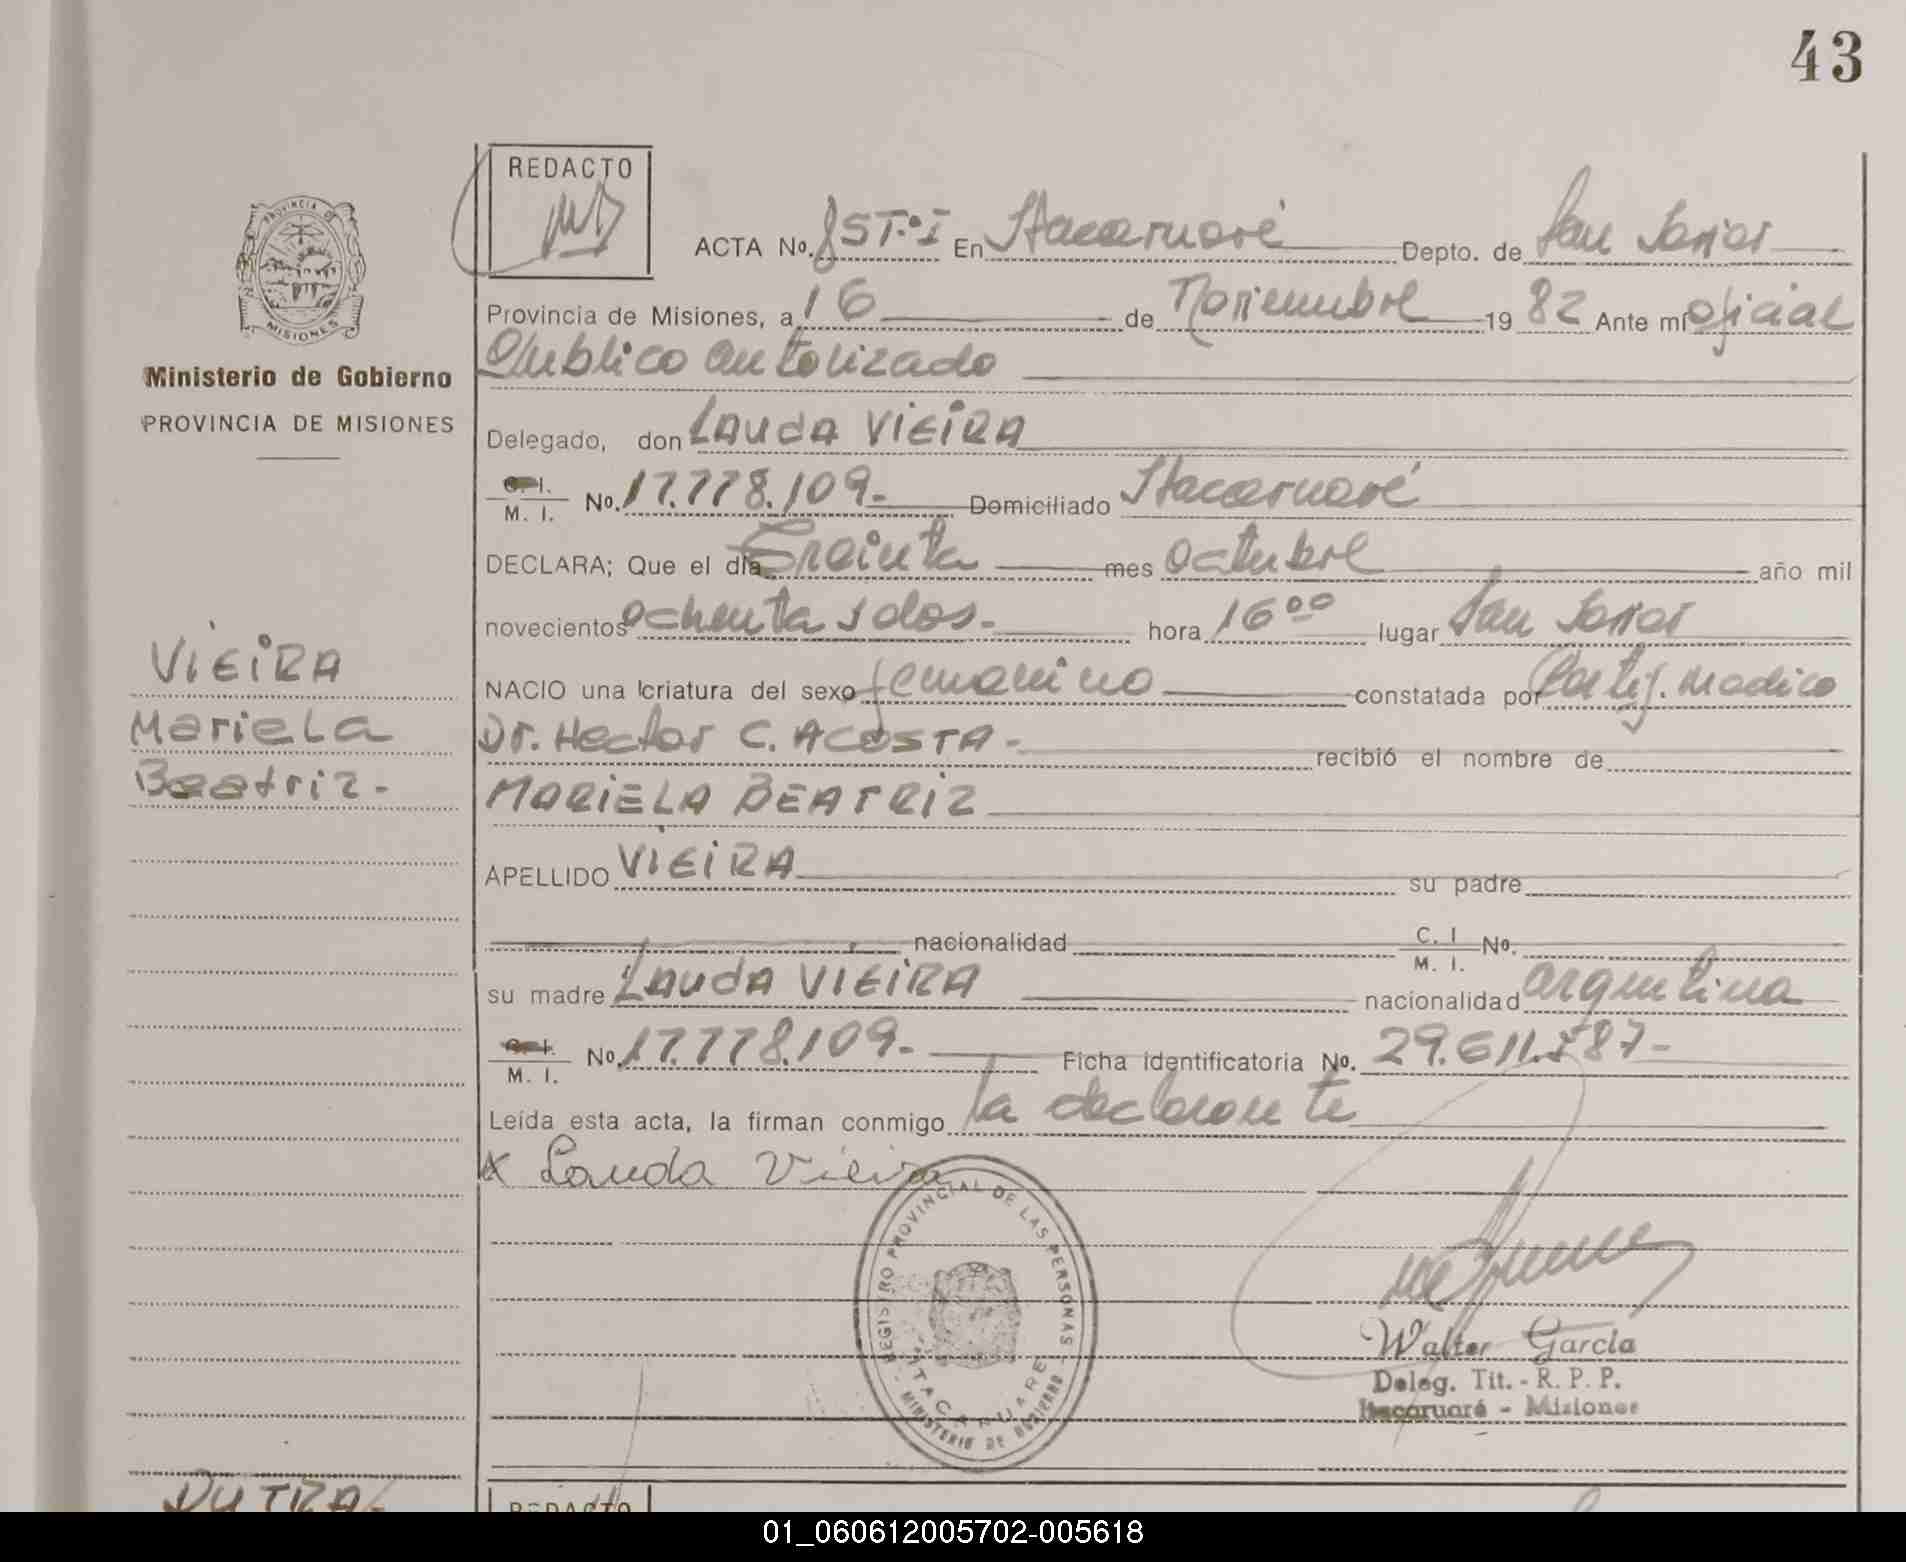 43
REDACTO
PROVINCIA DE
MISIONES
Ministerio de Gobierno
PROVINCIA DE MISIONES
ACTA No. 85 T.º I En Itacaruaré Depto. de San Javier
Provincia de Misiones, a 16 de Noviembre 1982 Ante mí oficial
Publico autorizado
Delegado, don Lauda Vieira
C. I.
M. I. No. 17.778.109.- Domiciliado Itacaruaré
DECLARA; Que el día Treinta mes octubre año mil
novecientos ochenta y dos.- hora 16⁰⁰ lugar San Javier
NACIO una criatura del sexo femenino constatada por Certif. Medico
Dr. Hector C. ACOSTA.- recibió el nombre de
MARIELA BEATRIZ
APELLIDO VIEIRA su padre
nacionalidad C. I.
M. I. No.
su madre Lauda VIEIRA nacionalidad argentina
C. I.
M. I. No. 17.778.109.- Ficha identificatoria No. 29.611.787-
Leída esta acta, la firman conmigo la declarante
x Lauda Vieira
VIEIRA
Mariela
Beatriz.-
REGISTRO PROVINCIAL DE LAS PERSONAS
ITACARUARE
MINISTERIO DE GOBIERNO
Walter García
Deleg. Tit. - R. P. P.
Itacaruaré - Misiones
DUTRA
REDACTO
01_060612005702-005618